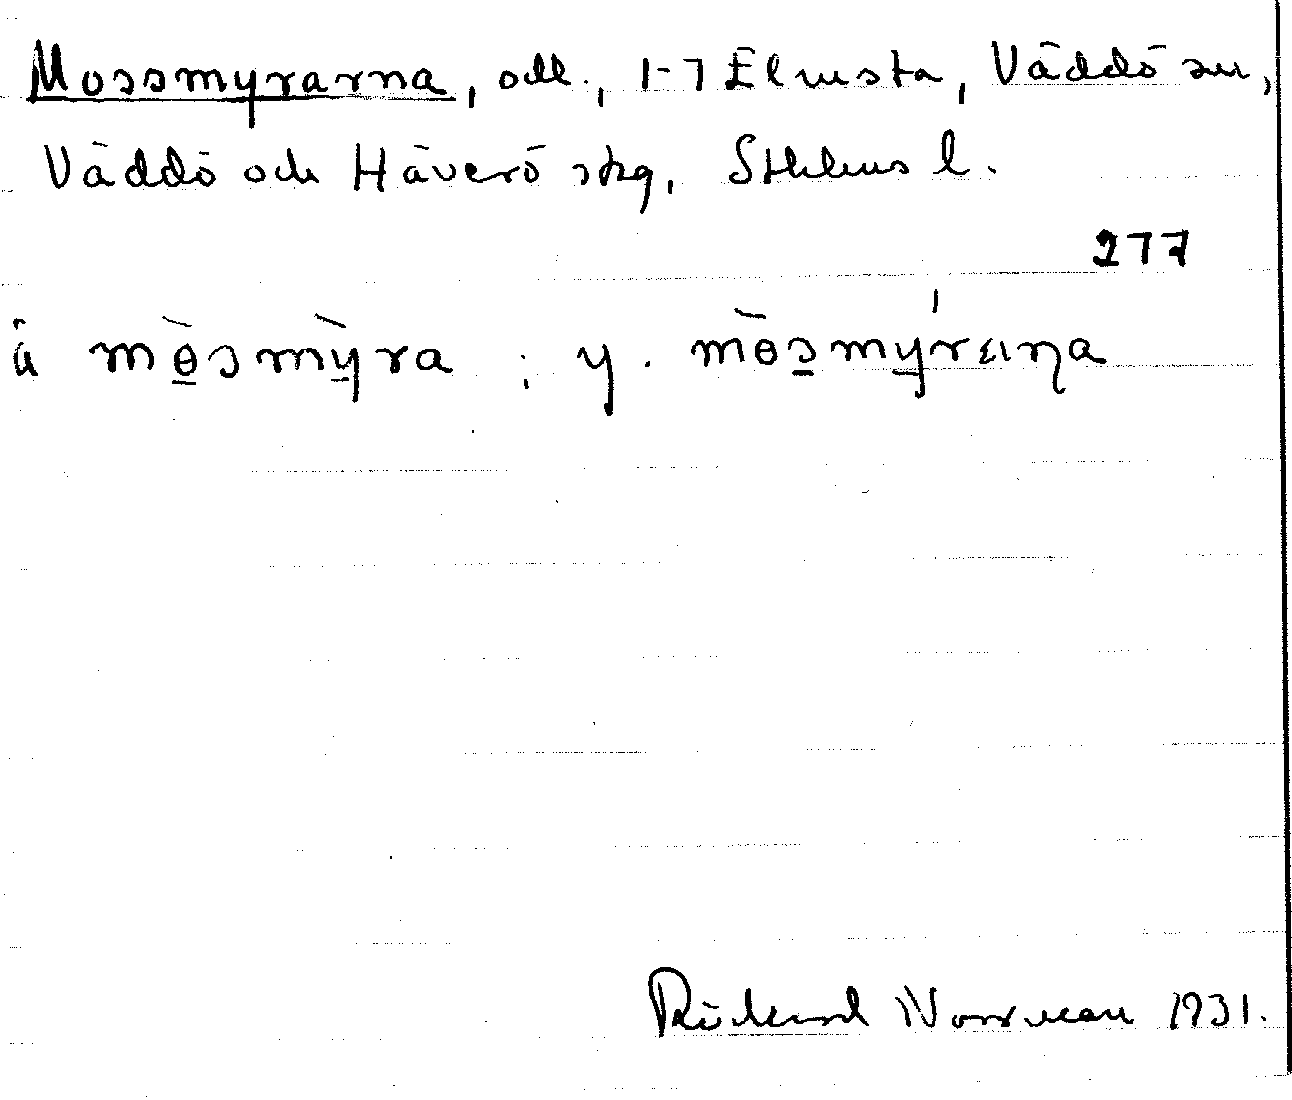 Mossmyrarna, odl., 1-7 Elmsta, Väddö sn,
Väddö och Häverö skg, Sthlms l.
277
å mòsmỳra ; y. mòsmýraɳa
Rickard Norrman 1931.